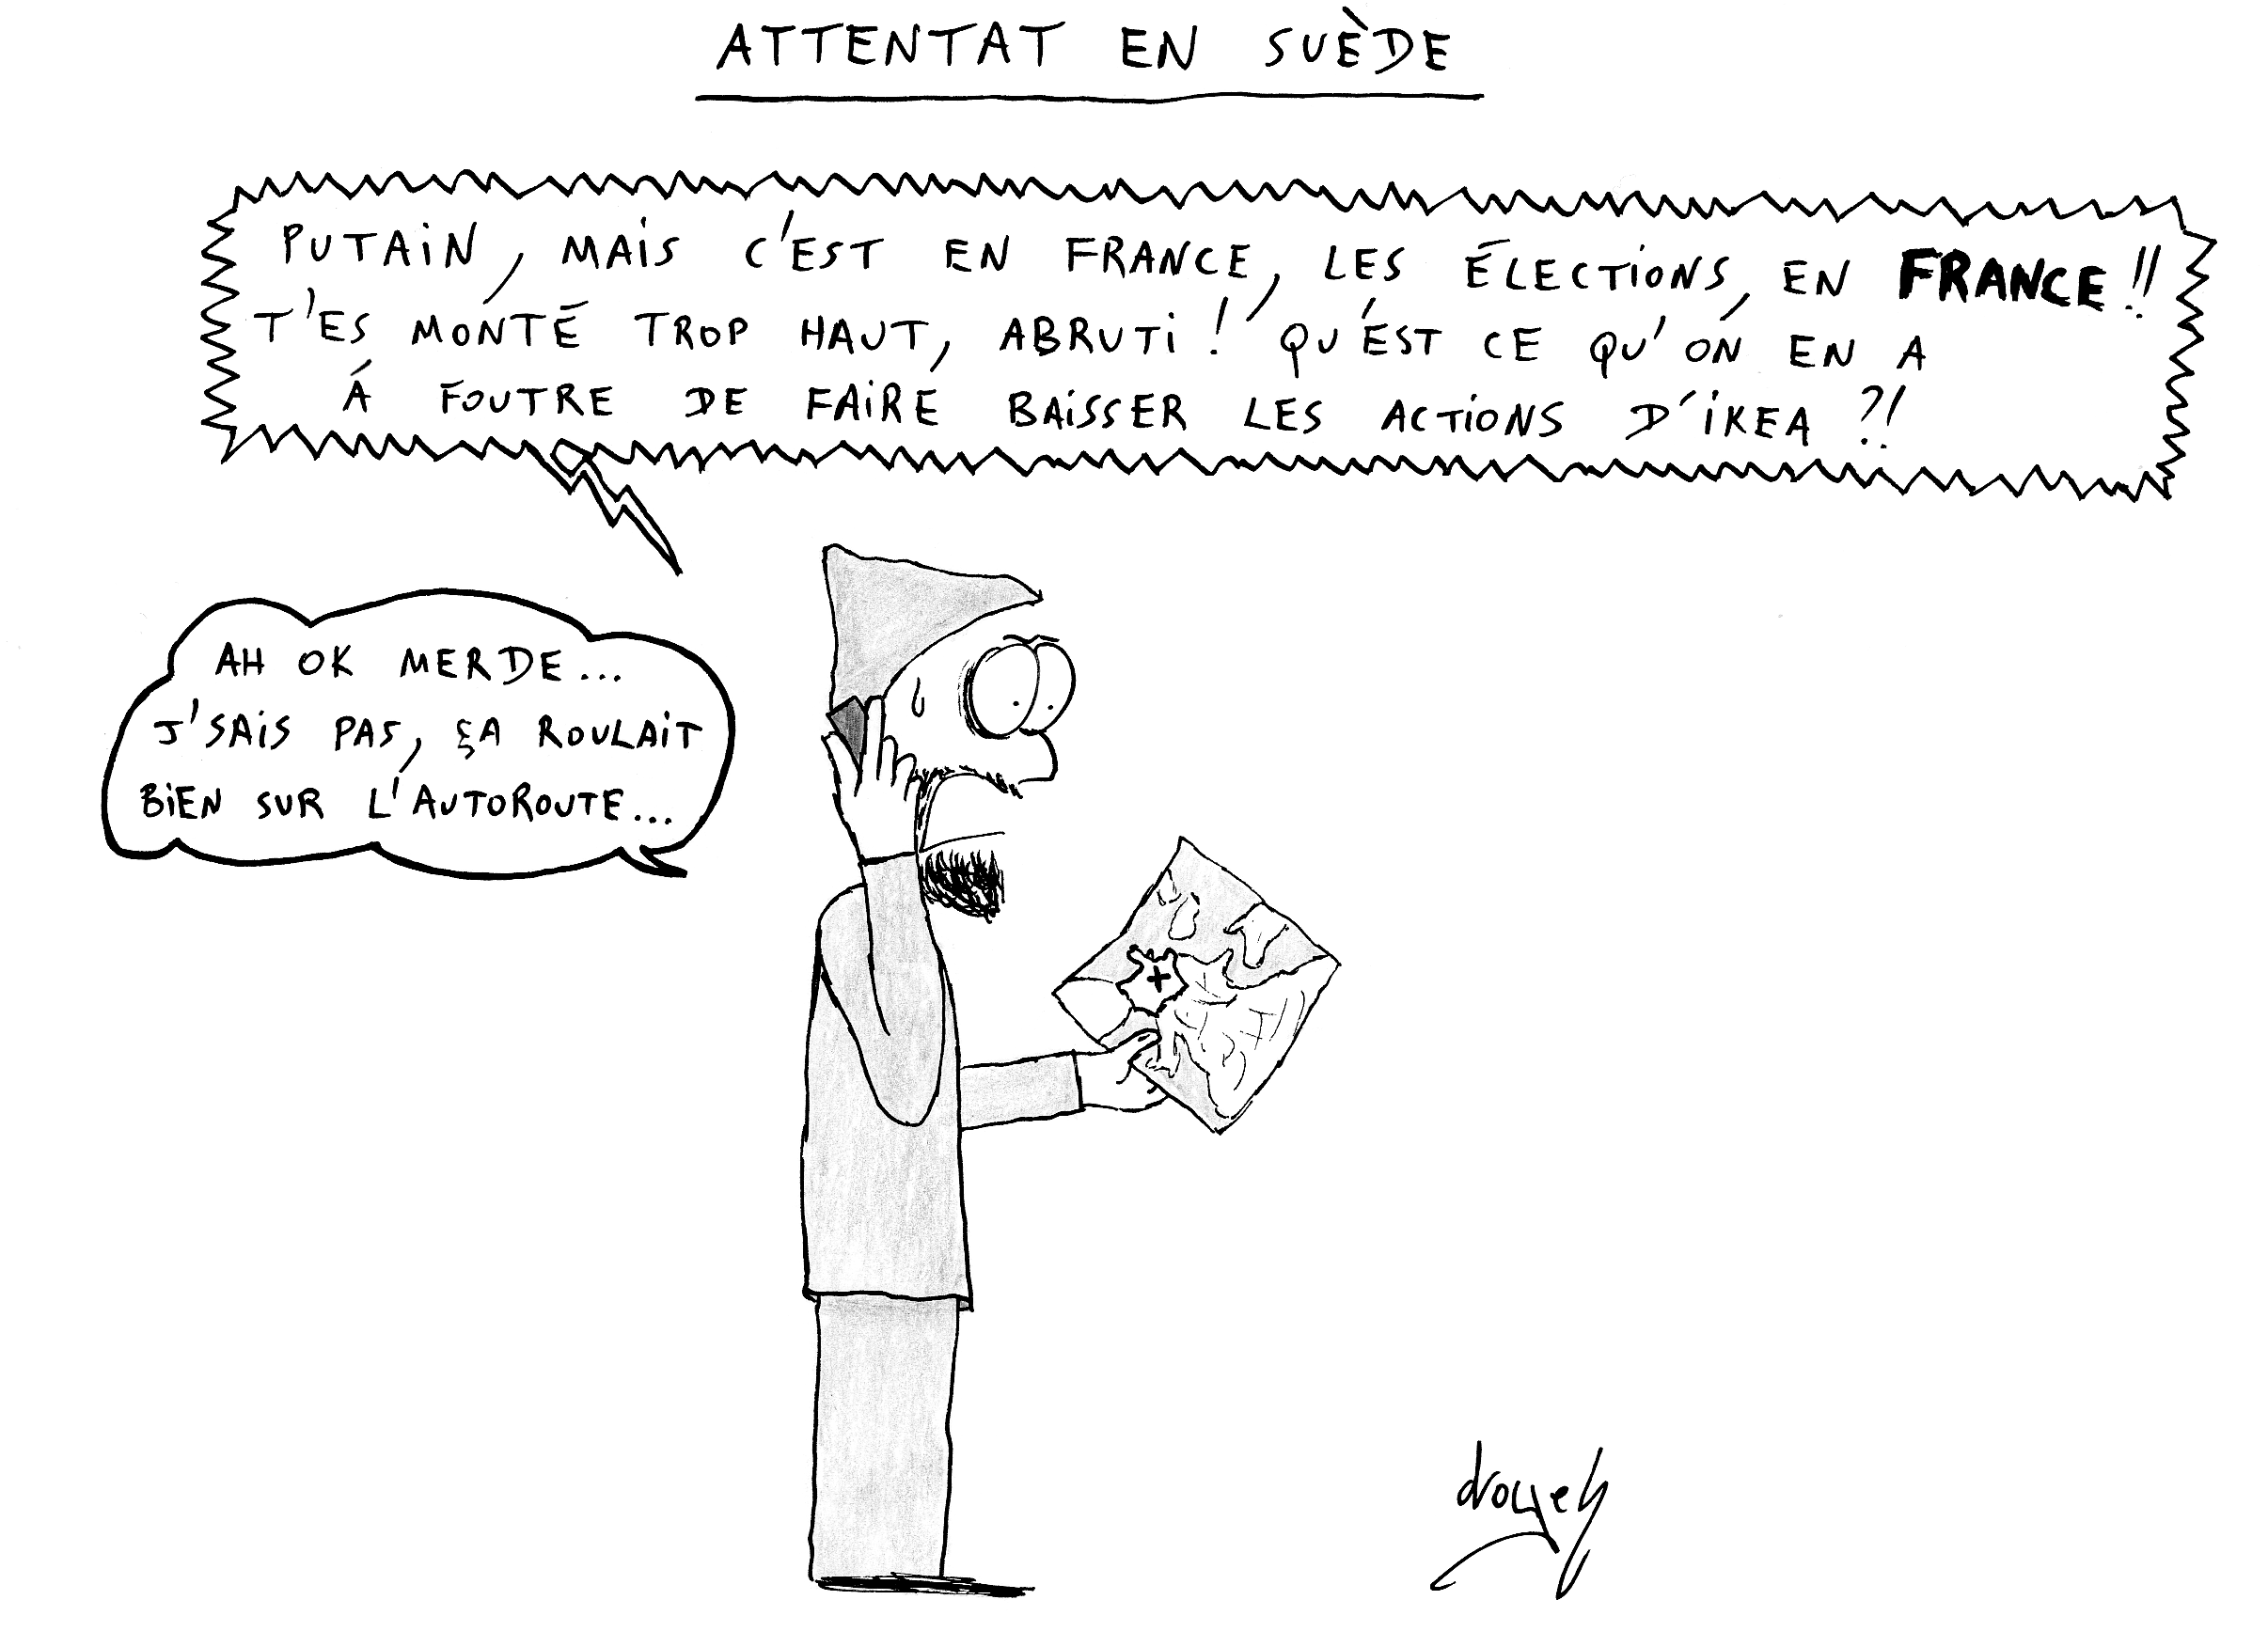 ATTENTAT EN SUÈDE
PUTAIN, MAIS C'EST EN FRANCE, LES ÉLECTIONS, EN FRANCE !!
T'ES MONTÉ TROP HAUT, ABRUTI ! QU'EST CE QU'ON EN A
À FOUTRE DE FAIRE BAISSER LES ACTIONS D'IKEA ?!
AH OK MERDE...
J'SAIS PAS, ÇA ROULAIT
BIEN SUR L'AUTOROUTE...